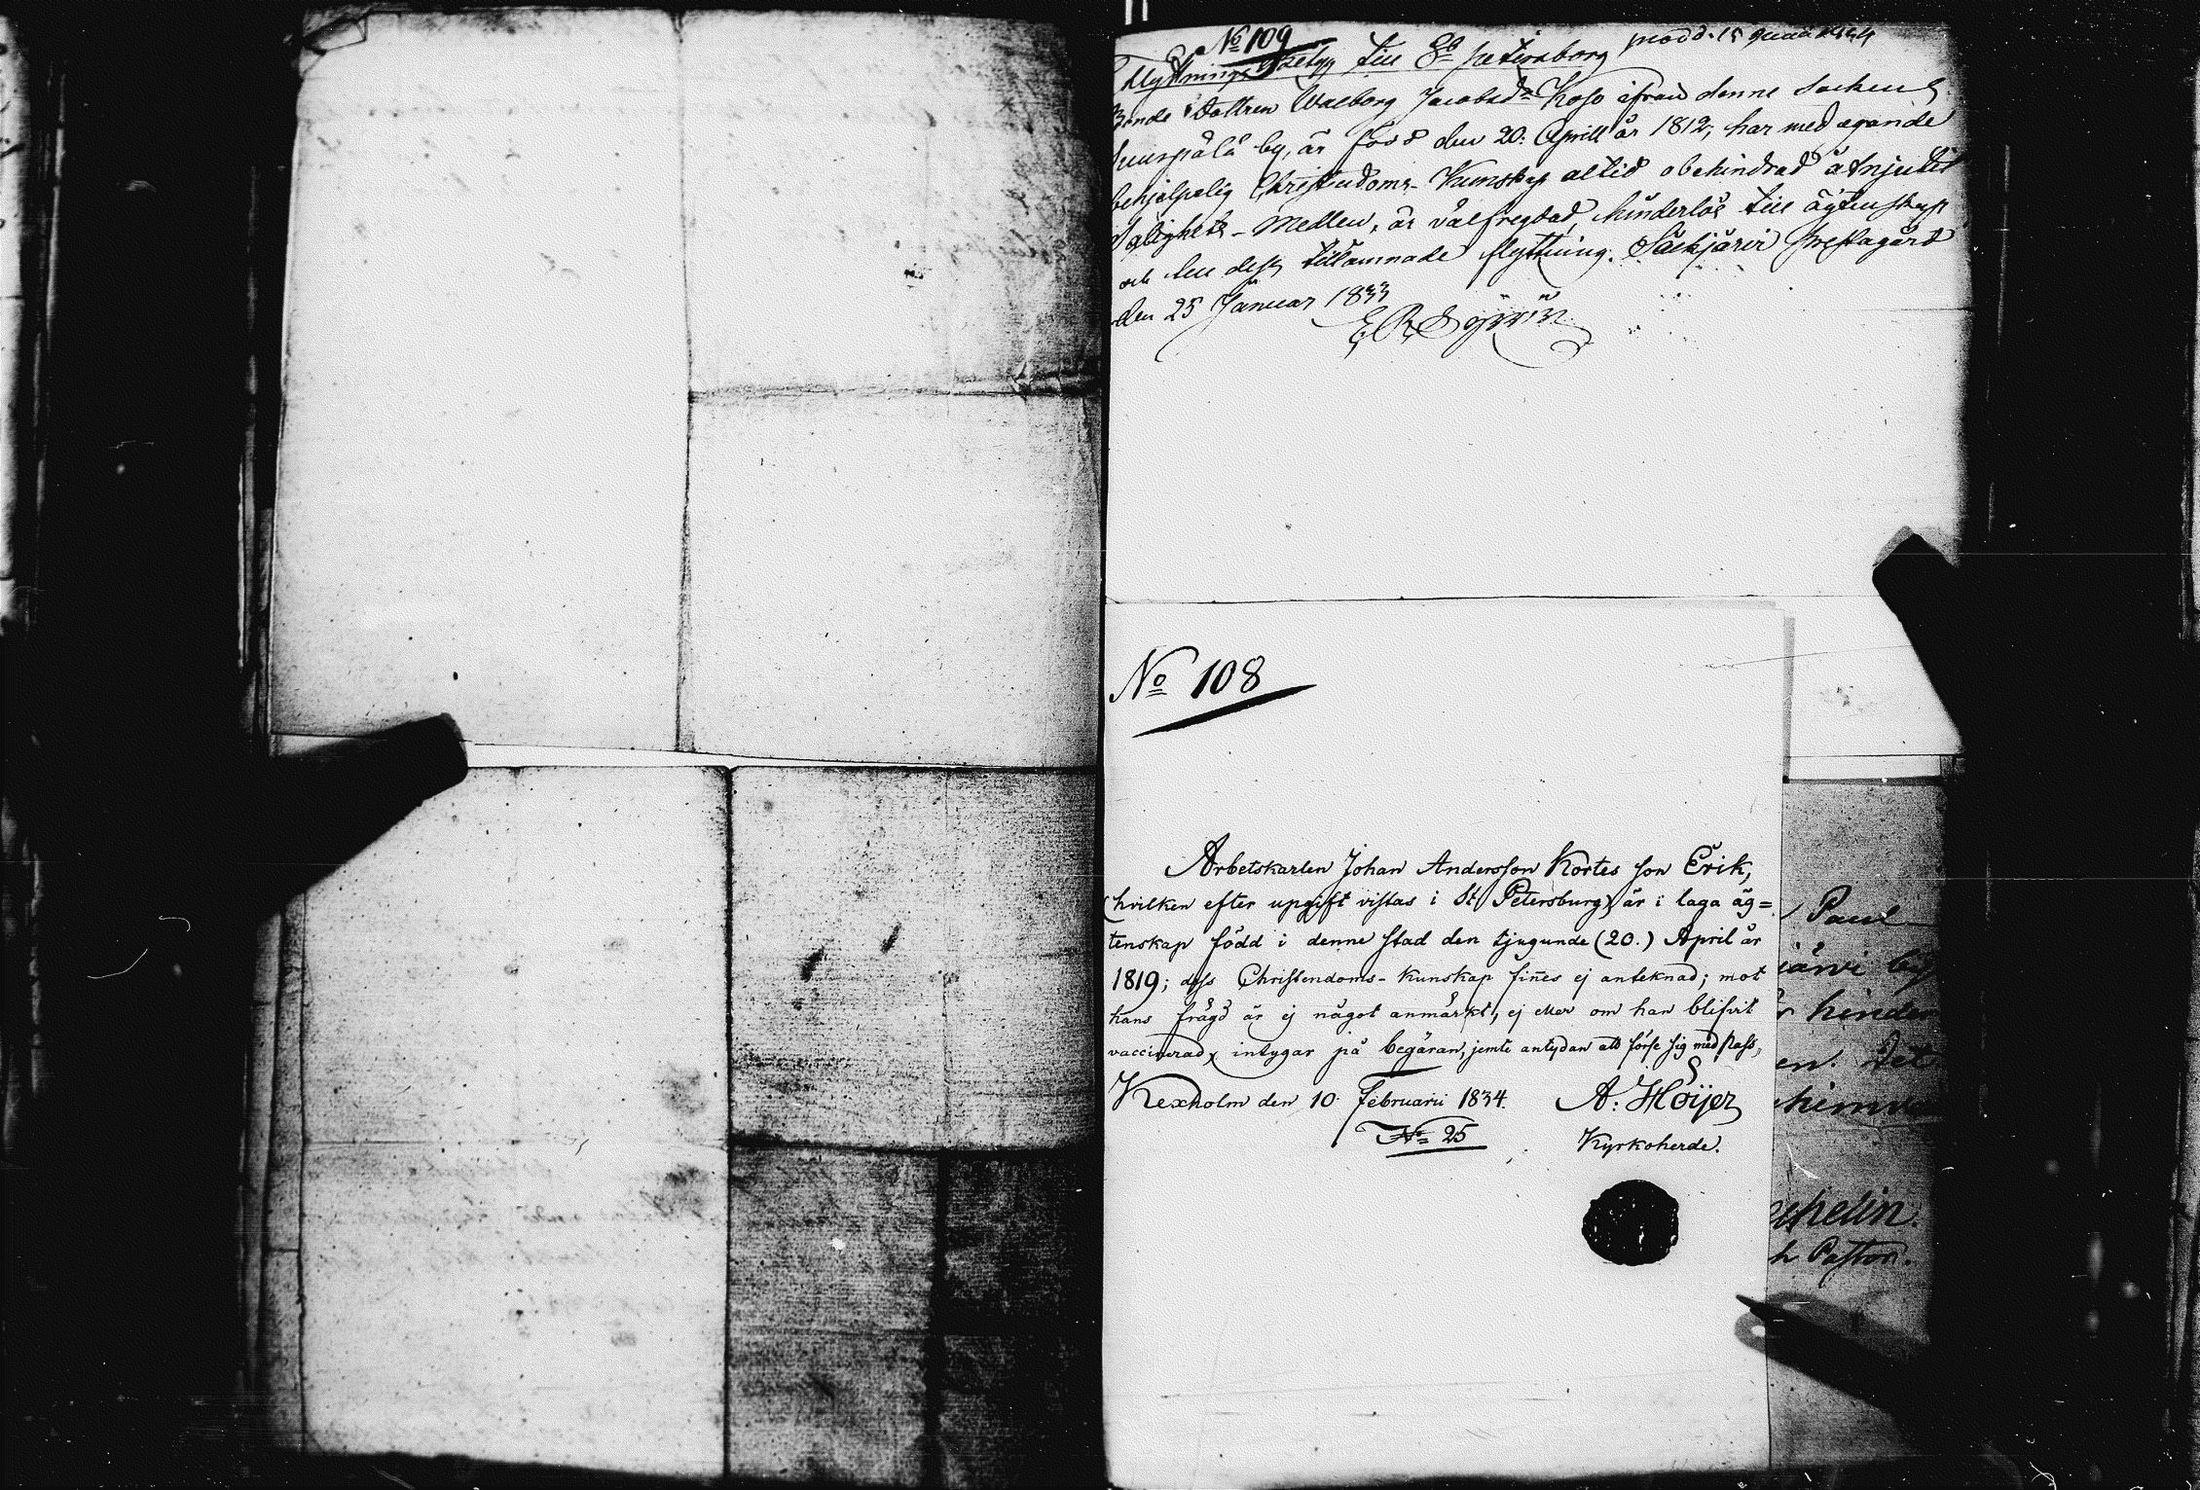 No 109
Flyttnings Betyg till St. Petersborg prod d. 15
Bonde Dottren Walborg Jacobsdr Koso ifrån denne Sockens
by, är född den 20: Aprill år 1812, har med egande
behjelpelig Christendoms-Kunskap altid obehindrad åtnjutit
Salighets-Medlen, är välfregdad, hinderlös till ägtenskap
och den dess tillämnade flyttning. Säckjärvi Prestagård
den 25 Januar 1833
No 108
Arbetskarlen Johan Andersson Kortes son Erik,
(hvilken efter upgift vistas i St Petersburg) är i laga äg=
tenskap född i denne stad den tjugunde (20.) April år
1819; dess Christendoms-kunskap fines ej anteknad; mot
hans frägd är ej något anmärkt, ej eller om han blifvit
vaccinerad, intygar på begäran, jemte antydan att förse sig med Pass,
Kexholm den 10 Februarii 1834. A: Höijer
No 25 Kyrkoherde.
Paul
järvi by
r hinder
en. Det
helin.
h Pastor.